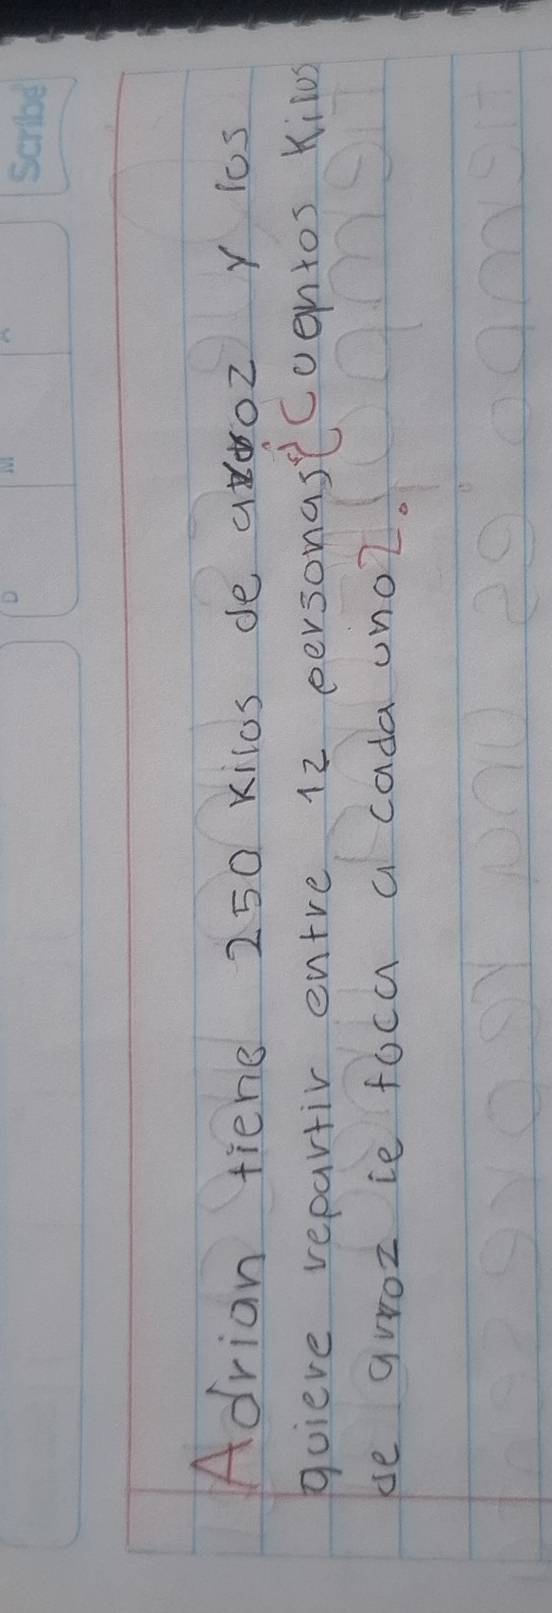 Scribe
D M A
Adrian tiene 250 Kilos de arroz y los
quiere repartir entre 12 personas ¿Cuantos Kilos
de arroz le toca a cada uno?.